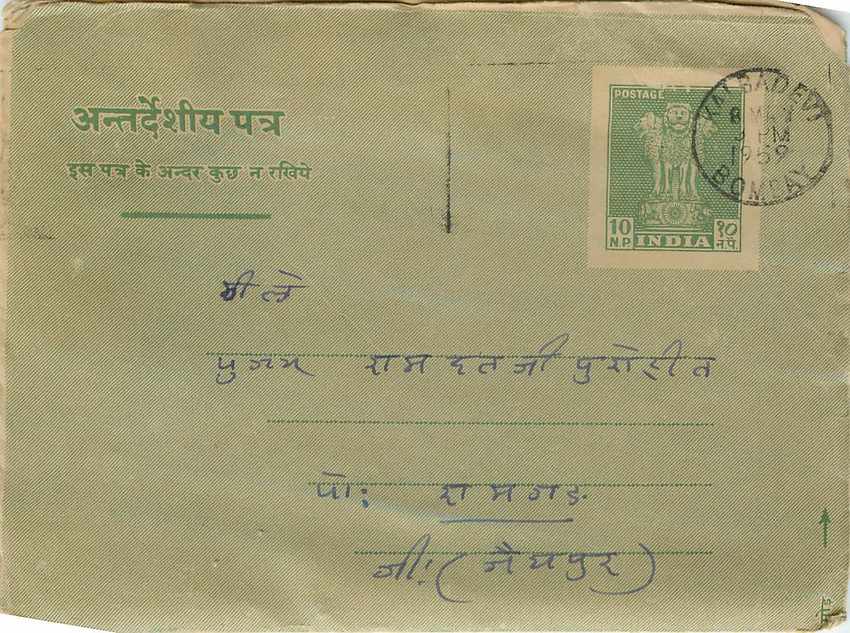 अन्तर्देशीय पत्र
इस पत्र के अन्दर कुछ न रखिये
POSTAGE
10 N.P. INDIA १० न.पै.
KALBADEVI
8 MAY
PM
1959
BOMBAY
मीले
पुज्य रामदतजी पुरोहीत
पो: रामगड
जी: (जैयपुर)